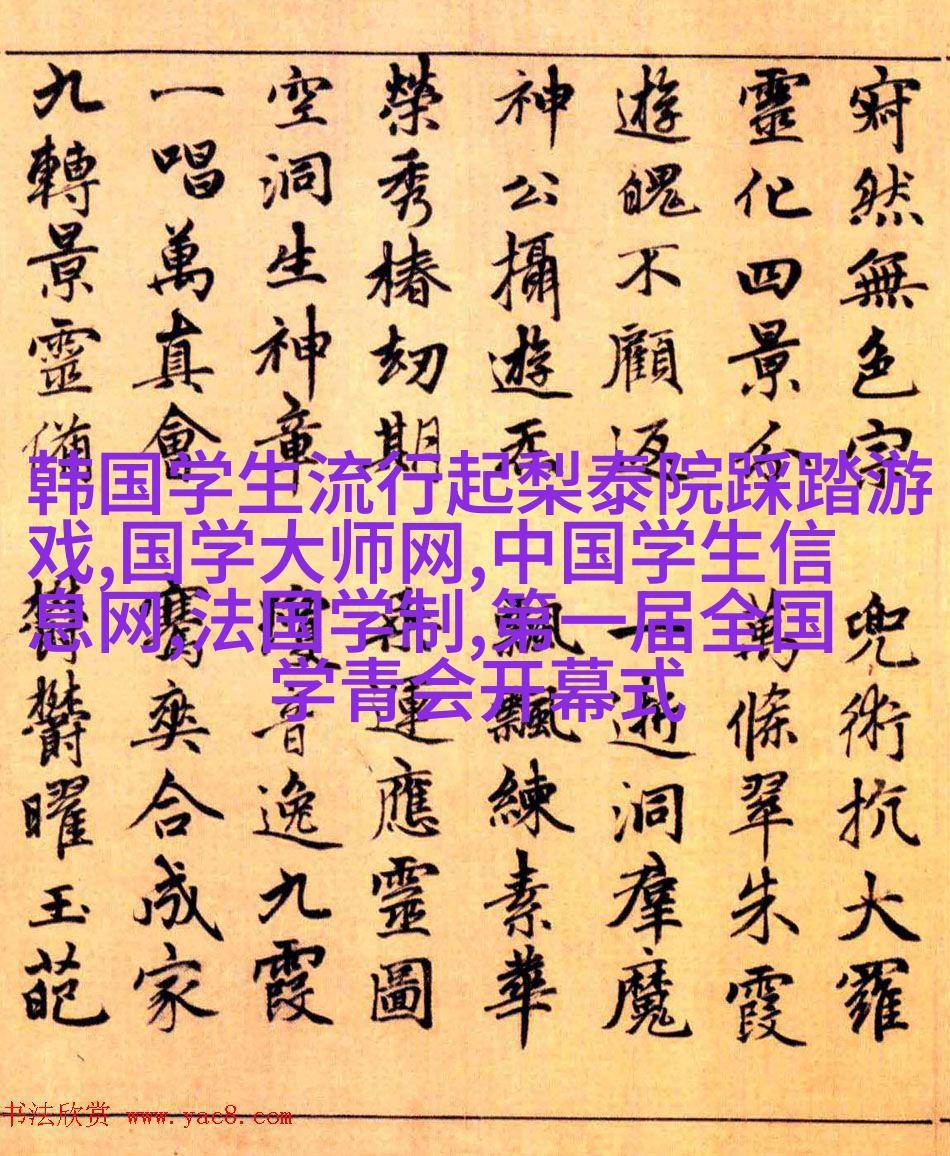 寂然無色宗 兜術抗大羅
靈化四景分 萬條翠朱霞
遊魄不顧返 一逝洞羣魔
神公攝遊炁 飄飄練素華
榮秀椿劫期 運應靈圖
空洞生神章 瓊音逸九霞
一唱萬真會 騫爽合成家
九轉景靈備 欝欝曜玉葩
韩国学生流行起梨泰院踩踏游
戏,国学大师网,中国学生信
息网,法国学制,第一届全国
学青会开幕式
书法欣赏 www.yac8.com